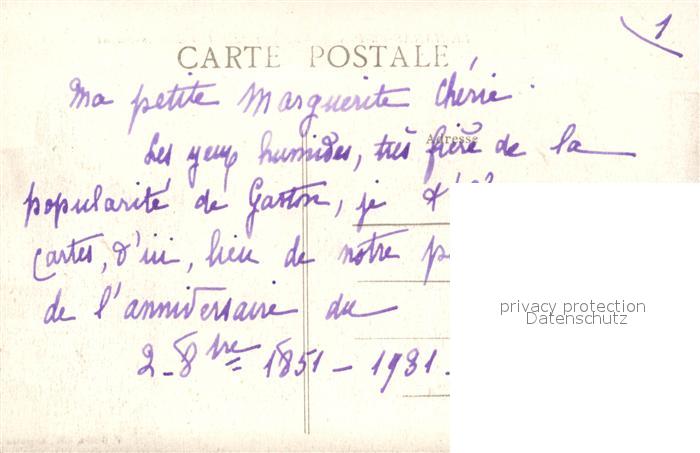 1
CARTE POSTALE
Ma petite Marguerite Chérie
Adresse
Les yeux humides, très fière de la
popularité de Gaston, je
cartes, d'ici, lieu de notre
de l'anniversaire du
2-8bre 1851-1931.
privacy protection
Datenschutz